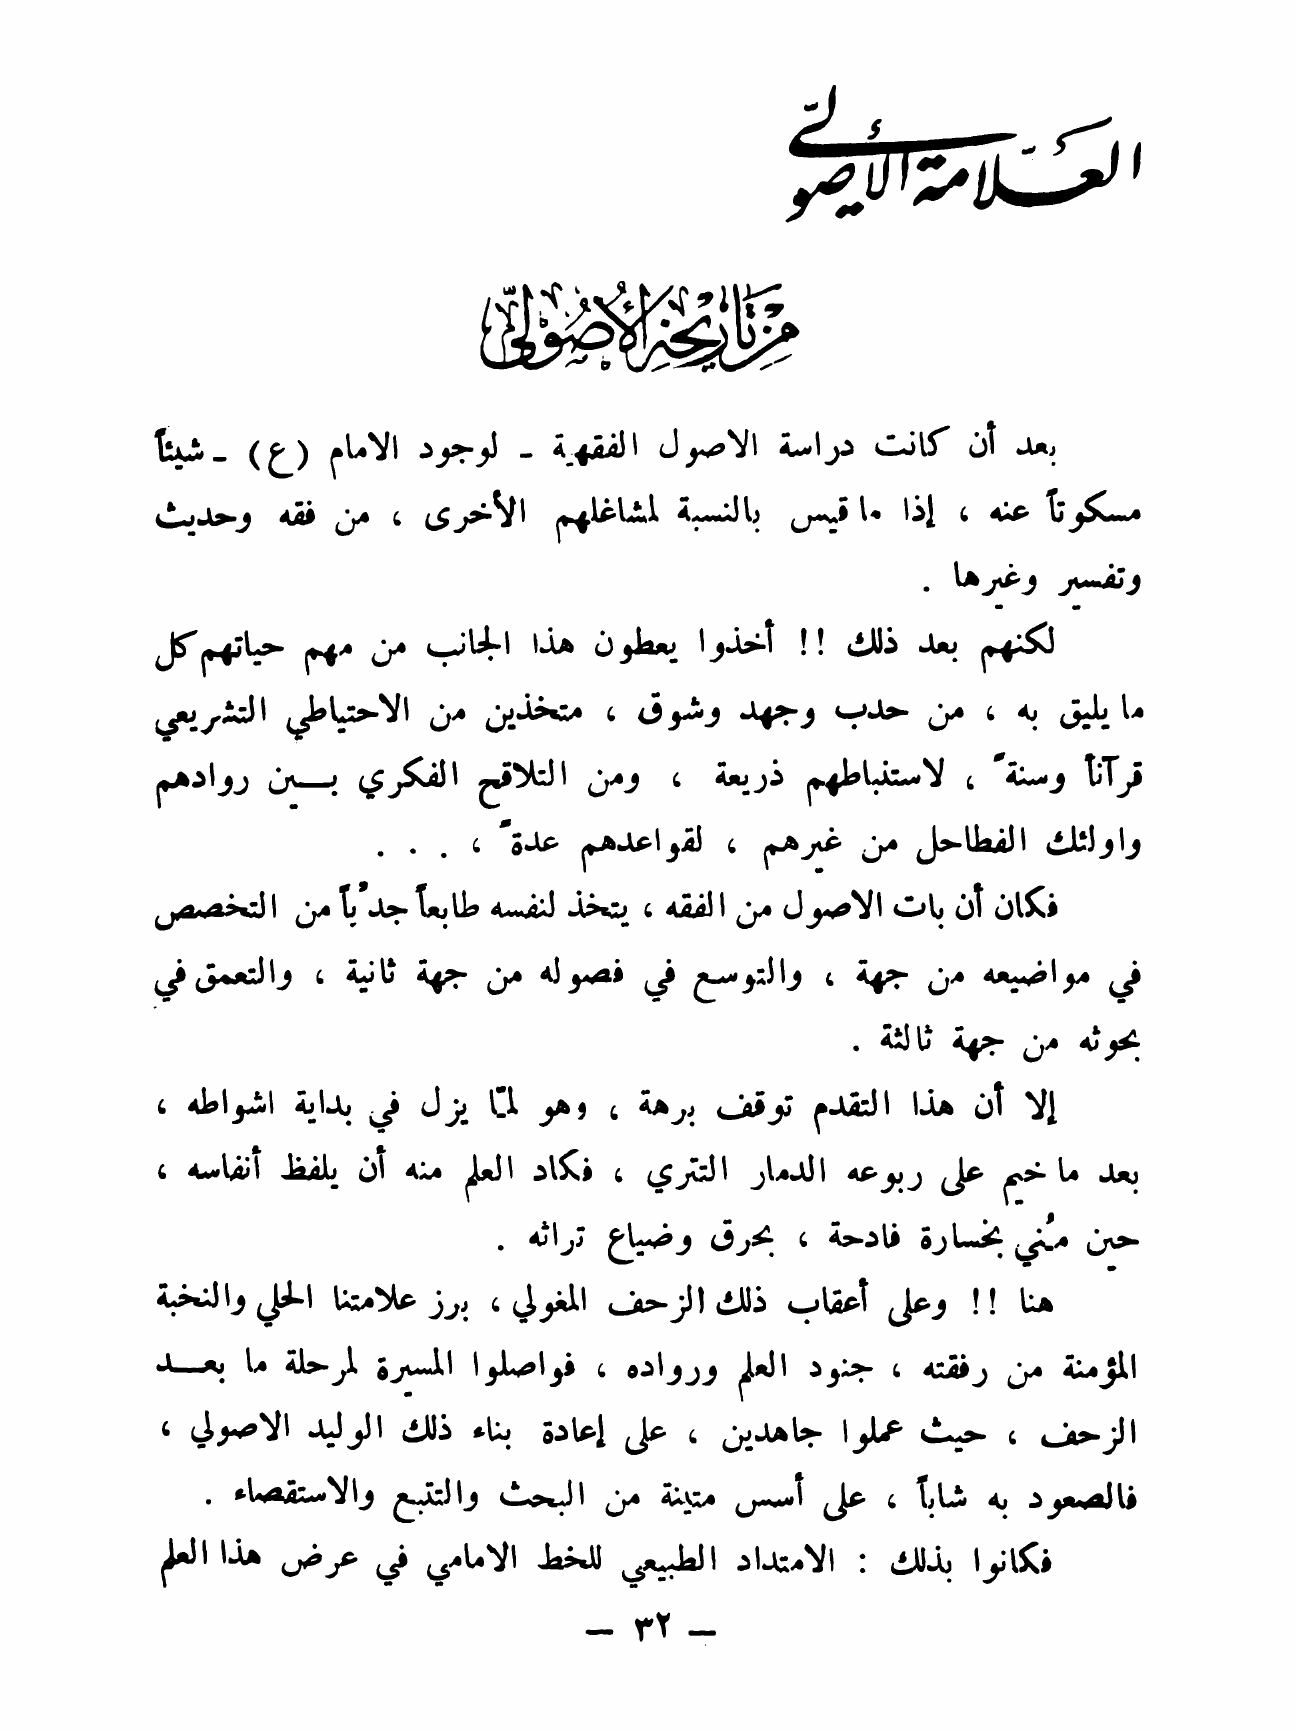 العلامة الأصولي
من تاريخه الأصولي
بعد أن كانت دراسة الاصول الفقهية - لوجود الامام (ع) - شيئاً
مسكوتاً عنه ، إذا ما قيس بالنسبة لمشاغلهم الأخرى ، من فقه وحديث
وتفسير وغيرها .
لكنهم بعد ذلك !! أخذوا يعطون هذا الجانب من مهم حياتهم كل
ما يليق به ، من حدب وجهد وشوق ، متخذين من الاحتياطي التشريعي
قرآناً وسنةً ، لاستنباطهم ذريعة ، ومن التلاقح الفكري بين روادهم
واولئك الفطاحل من غيرهم ، لقواعدهم عدةً ، . . .
فكان أن بات الاصول من الفقه ، يتخذ لنفسه طابعاً جدّياً من التخصص
في مواضيعه من جهة ، والتوسع في فصوله من جهة ثانية ، والتعمق في
بحوثه من جهة ثالثة .
إلا أن هذا التقدم توقف برهة ، وهو لمّا يزل في بداية اشواطه ،
بعد ما خيم على ربوعه الدمار التتري ، فكاد العلم منه أن يلفظ أنفاسه ،
حين مُني بخسارة فادحة ، بحرق وضياع تراثه .
هنا !! وعلى أعقاب ذلك الزحف المغولي ، برز علامتنا الحلي والنخبة
المؤمنة من رفقته ، جنود العلم ورواده ، فواصلوا المسيرة لمرحلة ما بعد
الزحف ، حيث عملوا جاهدين ، على إعادة بناء ذلك الوليد الاصولي ،
فالصعود به شاباً ، على أسس متينة من البحث والتتبع والاستقصاء .
فكانوا بذلك : الامتداد الطبيعي للخط الامامي في عرض هذا العلم
— ٣٢ —